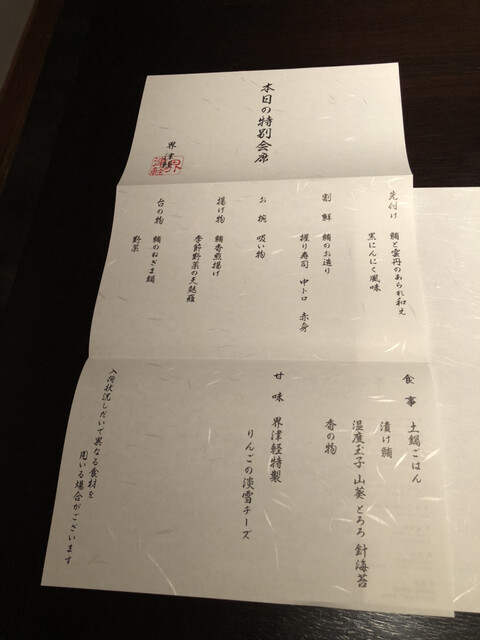 本日の特別会席
界 津軽
界津軽
先付け 鮪と雲丹のあられ和え
黒にんにく風味
割鮮 鮪のお造り
握り寿司 中トロ 赤身
お椀 吸い物
揚げ物 鮪香煎揚げ
季節野菜の天麩羅
台の物 鮪のねぎま鍋
野菜
食事 土鍋ごはん
漬け鮪
温度玉子 山葵 とろろ 針海苔
香の物
甘味 界津軽特製
りんごの淡雪チーズ
入荷状況しだいで異なる食材を
用いる場合がございます